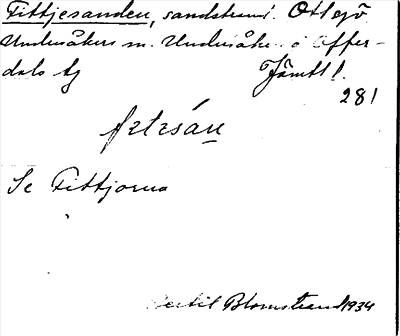 Fittjesanden, sandstrand i Ottsjö
Undersåkers sn. Undersåkers o Offer-
dals tg Jämtl.
281
fitsán
Se Fittjorna
Bertil Blomstrand 1934